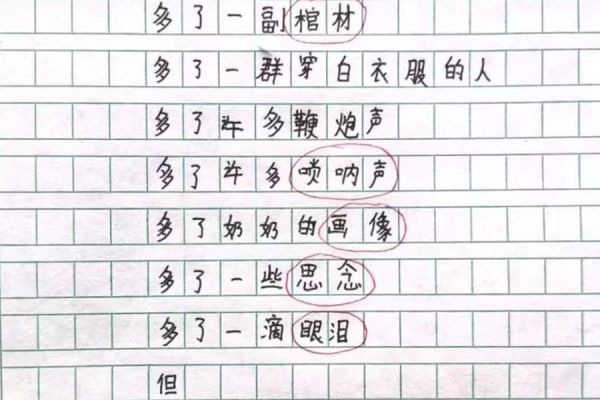 多了一副棺材
多了一群穿白衣服的人
多了许多鞭炮声
多了许多唢呐声
多了奶奶的画像
多了一些思念
多了一滴眼泪
但